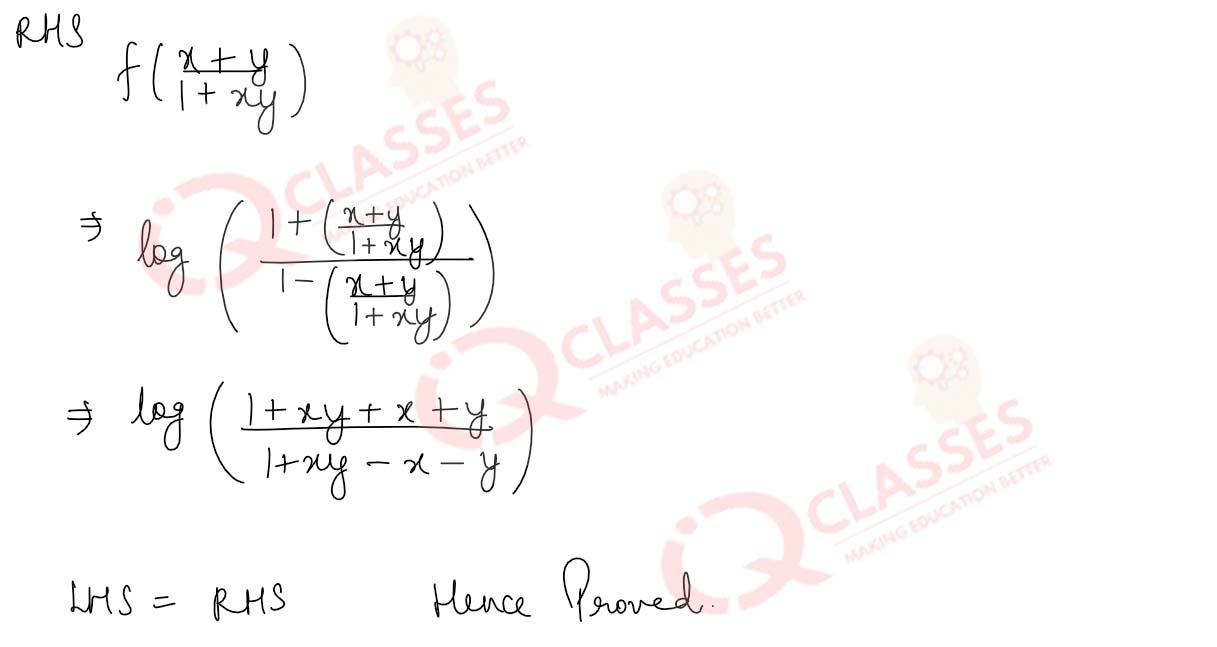 RHS
f((x + y)/(1 + xy))
⇒ log((1 + ((x + y)/(1 + xy)))/(1 − ((x + y)/(1 + xy))))
⇒ log((1 + xy + x + y)/(1 + xy − x − y))
LHS = RHS Hence Proved.
iQ CLASSES
MAKING EDUCATION BETTER
iQ CLASSES
MAKING EDUCATION BETTER
iQ CLASSES
MAKING EDUCATION BETTER